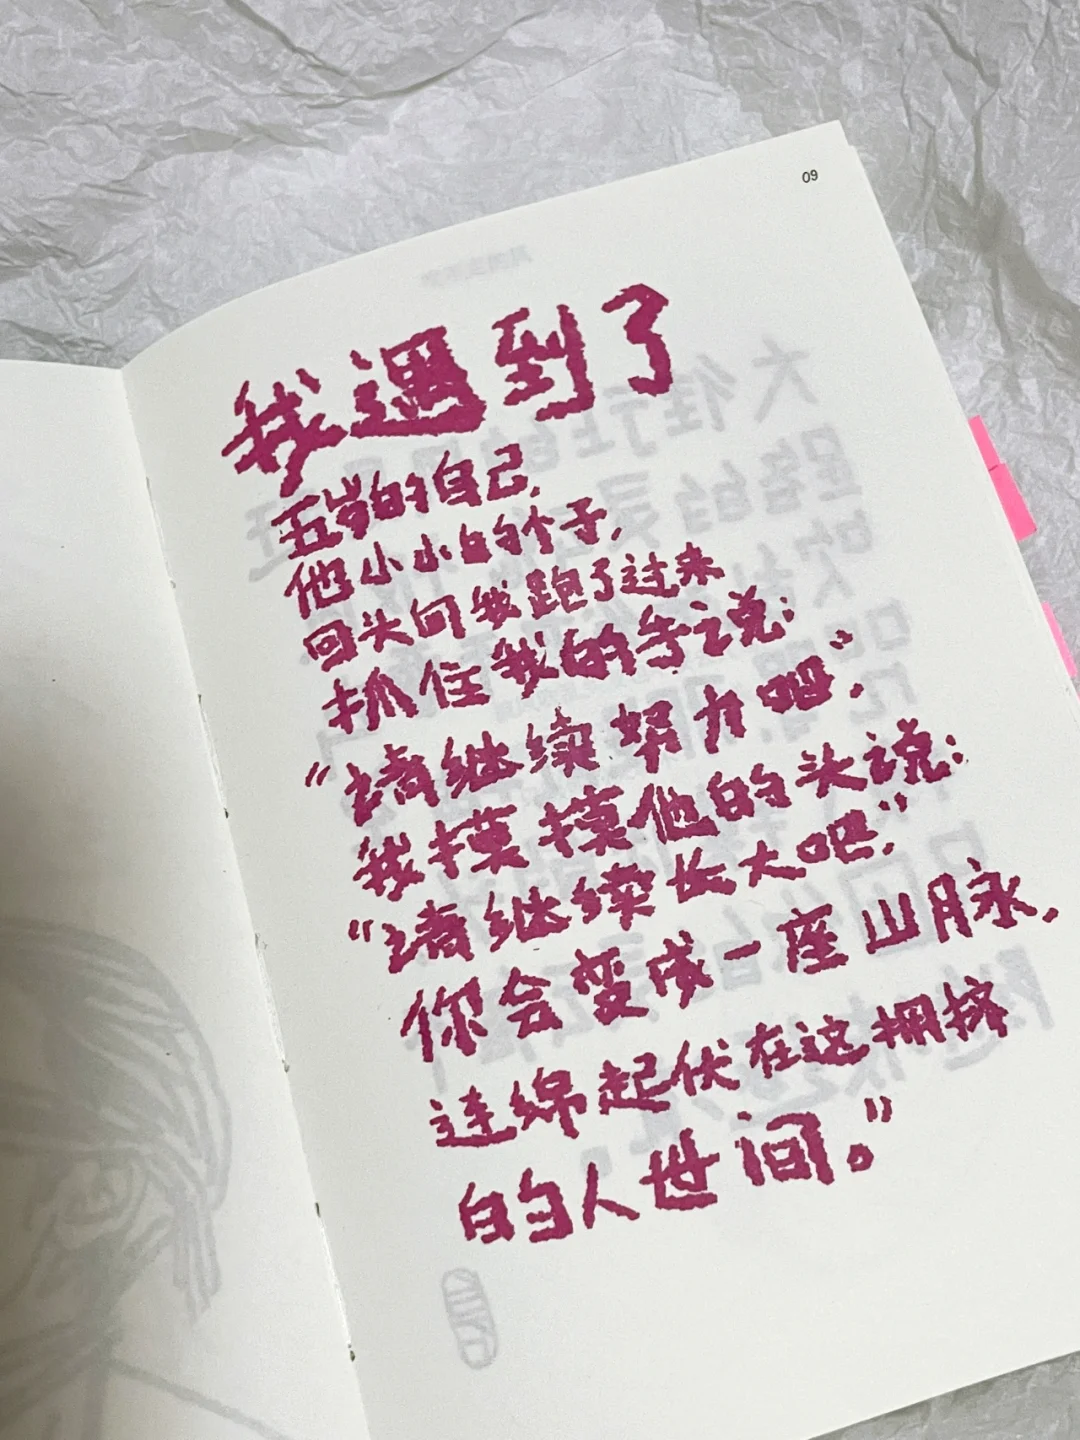 09
我遇到了
五岁的自己,
他小小的个子,
回头向我跑了过来
抓住我的手说:
“请继续努力吧.”
我摸摸他的头说:
“请继续长大吧.”
你会变成一座山脉.
连绵起伏在这拥挤
的人世间。”